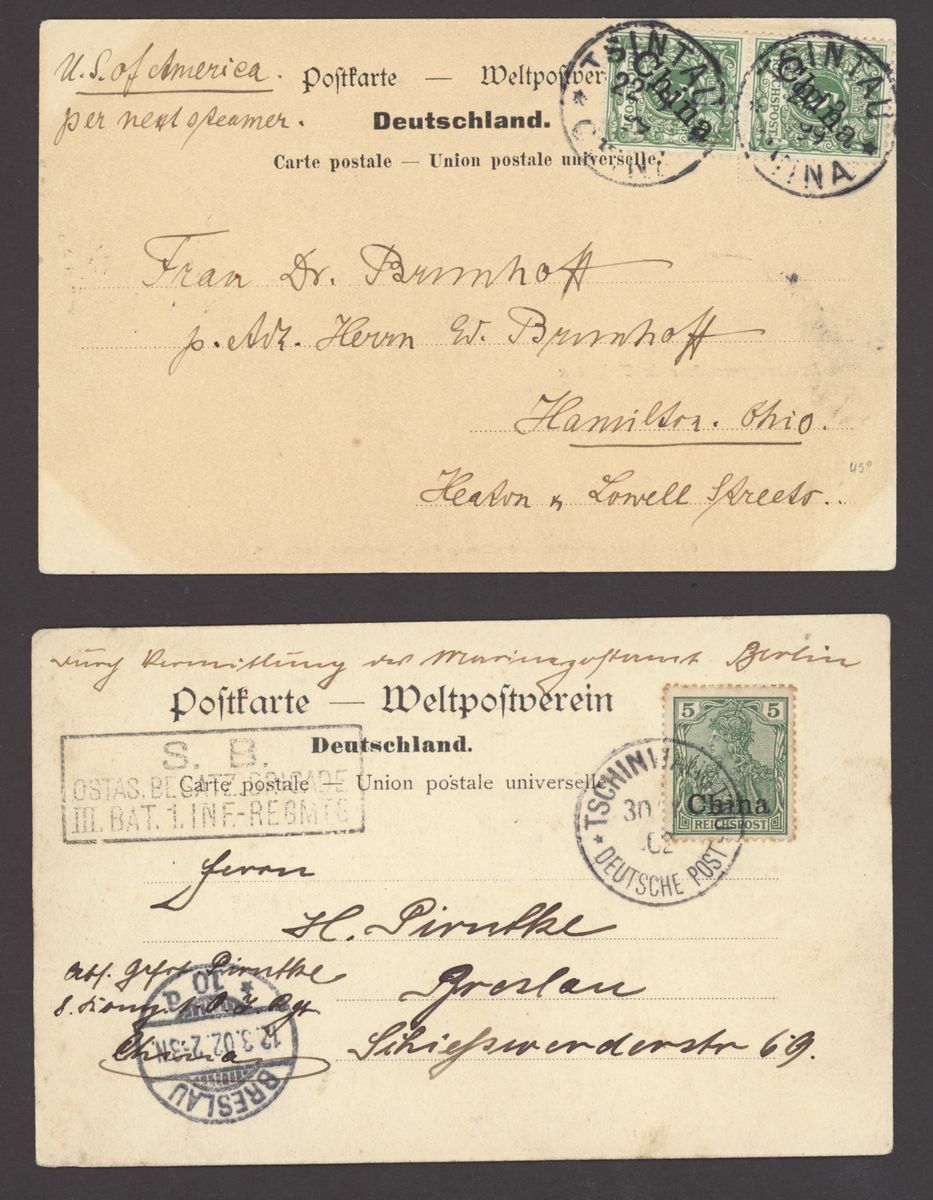 U.S. of America.
per next steamer.
Postkarte — Weltpostver
Deutschland.
Carte postale — Union postale universelle.
TSINTAU
CHINA
22
China
REICHSPOST
TSINTAU
CHINA
99
China
REICHSPOST
Frau Dr. Brunhoff
p. Adr. Herrn Ed. Brunhoff
Hamilton. Ohio.
Heaton & Lowell Streets..
45°
Durch Vermittlung des Marinepostamt Berlin
Postkarte — Weltpostverein
Deutschland.
Carte postale — Union postale universelle
S. B.
OSTAS. BESATZ. BRIGADE
III. BAT. 1. INF.-REGMTS
5 5
China
REICHSPOST
30
02
DEUTSCHE POST
Herrn
H. Pirntke
Breslau
Schießwerderstr 69.
Abs. Gefrt Pirntke
China
BRESLAU
12.3.02. 2-3N.
10 d